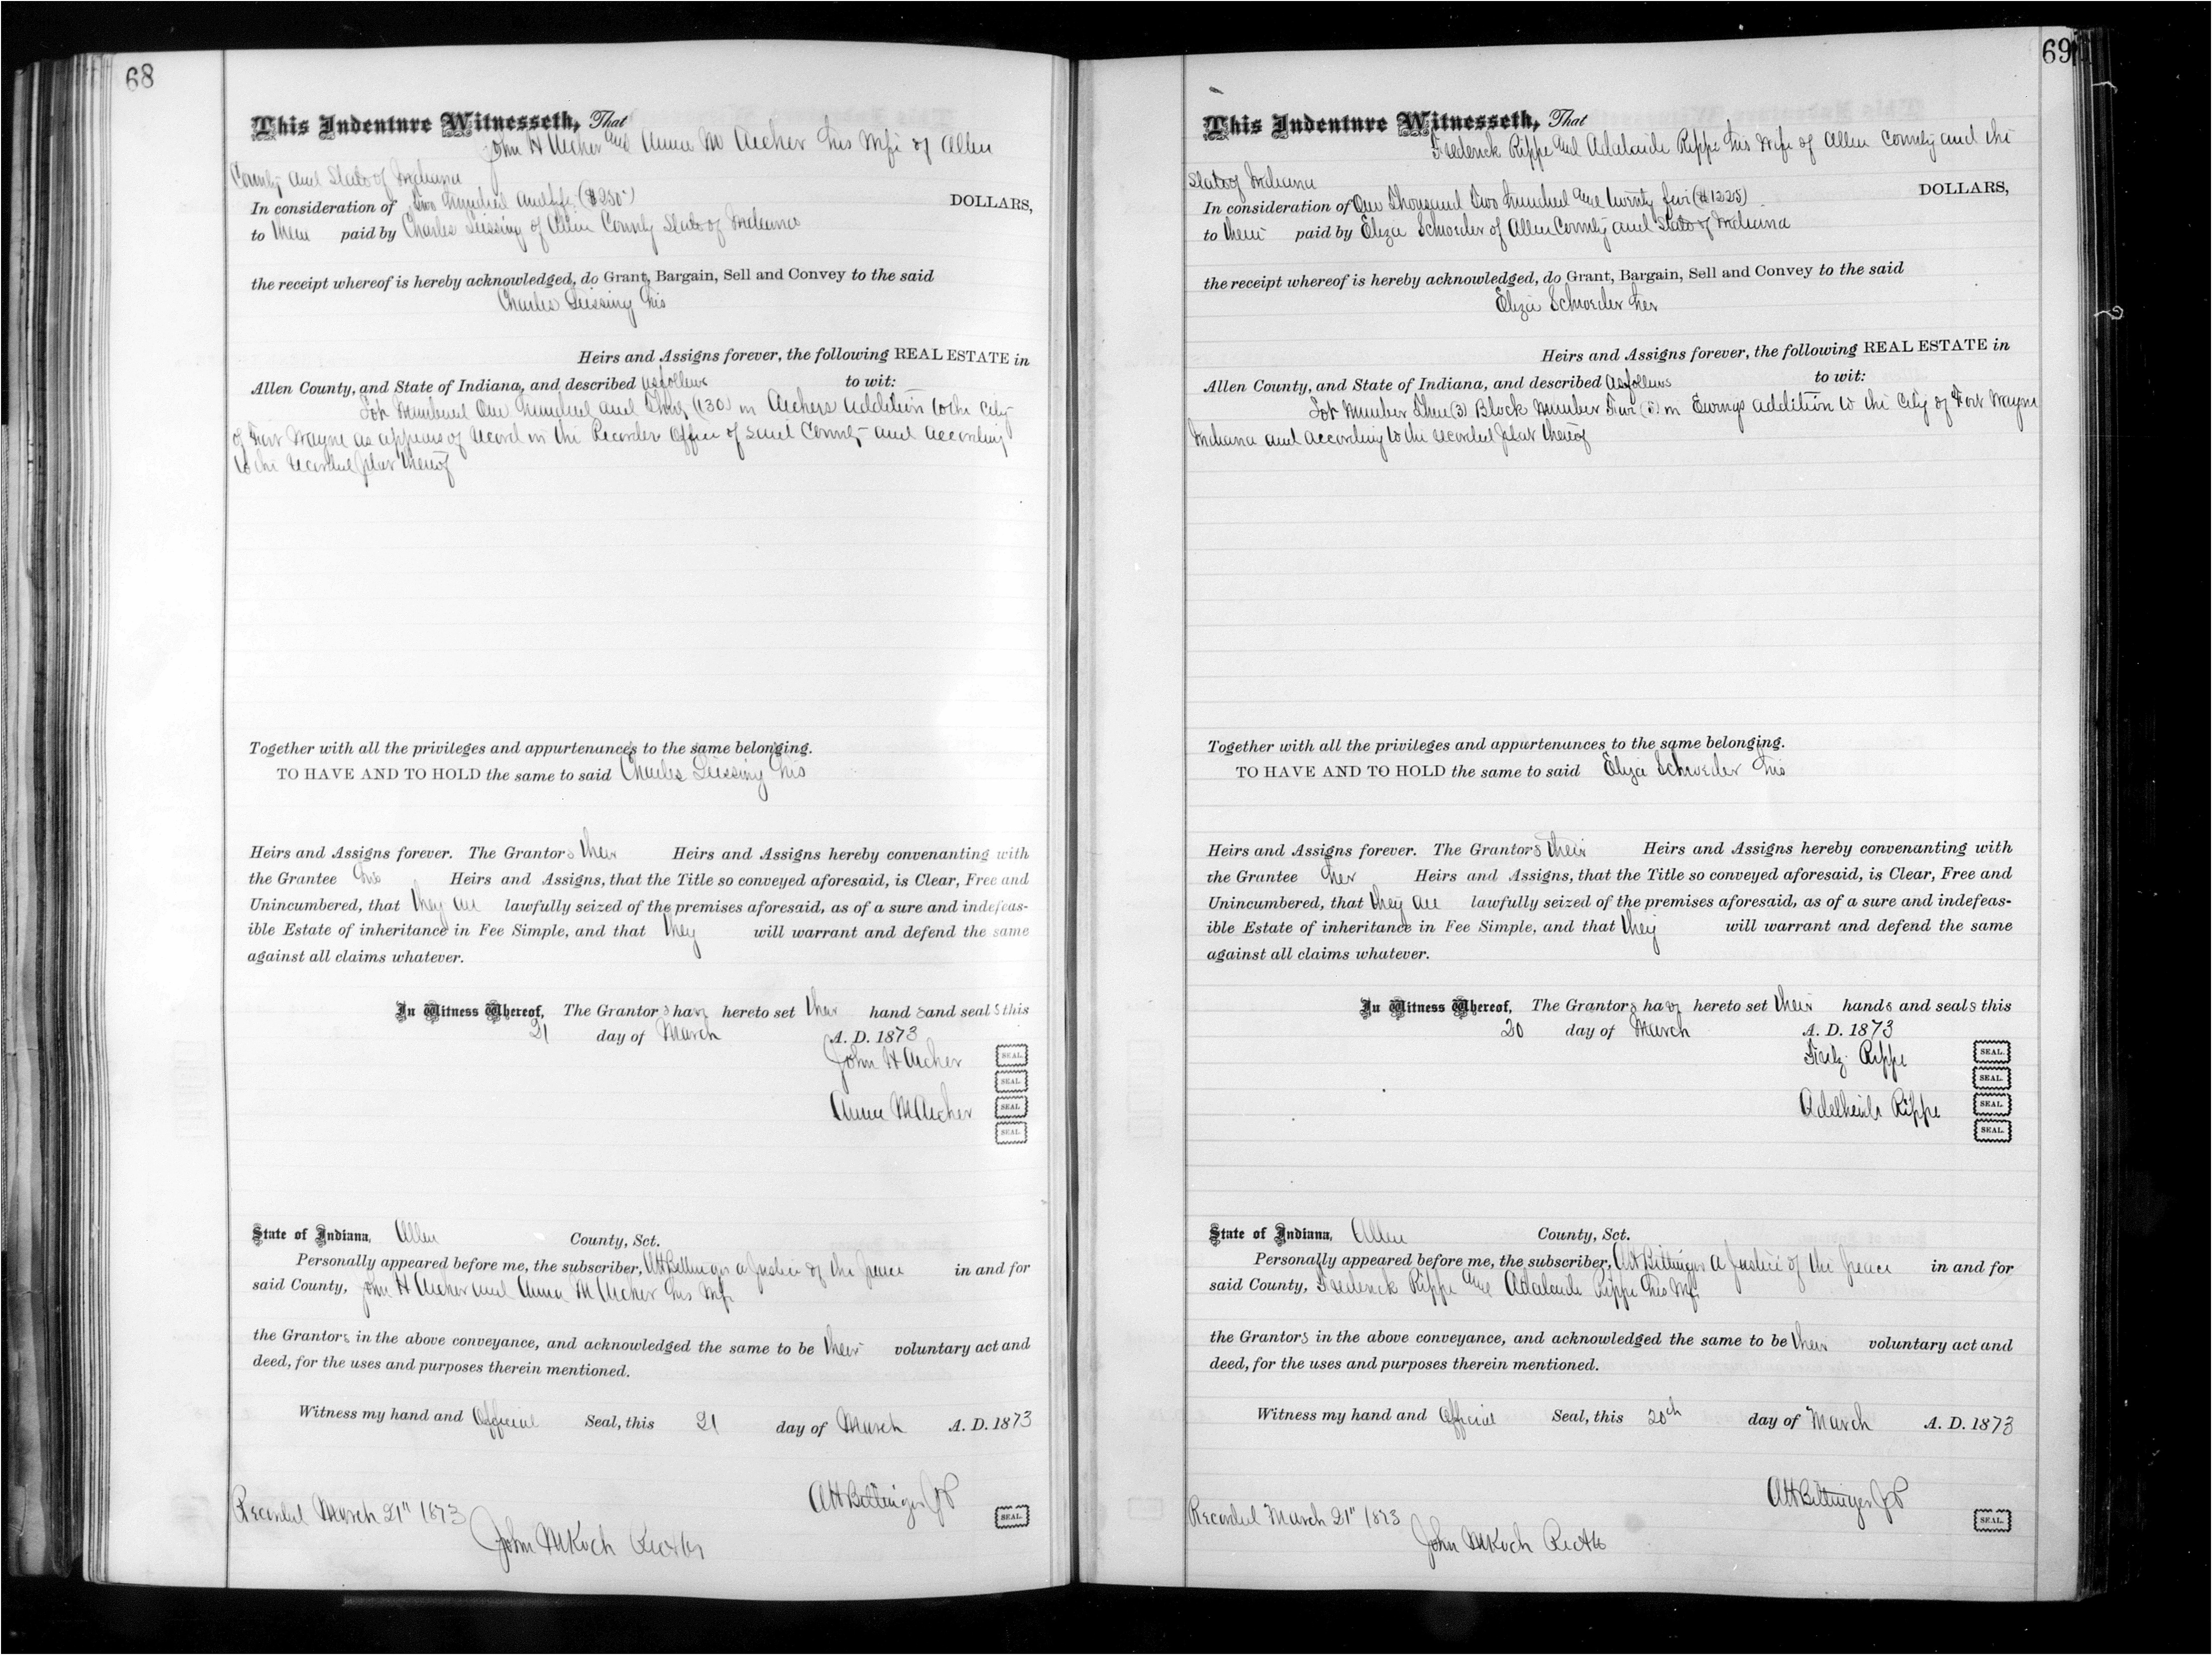 68
This Indenture Witnesseth, That
John H Archer and Anna M Archer his wife of Allen
County and State of Indiana
In consideration of Two Hundred and fifty ($250) DOLLARS,
to them paid by Charles of Allen County State of Indiana
the receipt whereof is hereby acknowledged, do Grant, Bargain, Sell and Convey to the said
Charles his
Heirs and Assigns forever, the following REAL ESTATE in
Allen County, and State of Indiana, and described as follows to wit:
Lot Numbered One Hundred and (130) in Archers Addition to the City
of Fort Wayne as appears of record in the Recorders Office of said County and according
to the recorded plat thereof
Together with all the privileges and appurtenances to the same belonging.
TO HAVE AND TO HOLD the same to said Charles his
Heirs and Assigns forever. The Grantors their Heirs and Assigns hereby convenanting with
the Grantee his Heirs and Assigns, that the Title so conveyed aforesaid, is Clear, Free and
Unincumbered, that they are lawfully seized of the premises aforesaid, as of a sure and indefeas-
ible Estate of inheritance in Fee Simple, and that they will warrant and defend the same
against all claims whatever.
In Witness Whereof, The Grantors have hereto set their hands and seals this
21 day of March A. D. 1873
John H Archer SEAL.
SEAL.
Anna M Archer SEAL.
SEAL.
State of Indiana, Allen County, Sct.
Personally appeared before me, the subscriber, AH Bittinger a Justice of the peace in and for
said County, John H Archer and Anna M Archer his wife
the Grantors in the above conveyance, and acknowledged the same to be their voluntary act and
deed, for the uses and purposes therein mentioned.
Witness my hand and Official Seal, this 21 day of March A. D. 1873
AH Bittinger JP SEAL.
Recorded March 21" 1873
John M Koch
69
This Indenture Witnesseth, That
Frederick Rippe and Adalaide Rippe his wife of Allen County and the
State of Indiana
In consideration of One Thousand Two Hundred and twenty five ($1225) DOLLARS,
to them paid by Eliza Schroeder of Allen County and State of Indiana
the receipt whereof is hereby acknowledged, do Grant, Bargain, Sell and Convey to the said
Eliza Schroeder her
Heirs and Assigns forever, the following REAL ESTATE in
Allen County, and State of Indiana, and described as follows to wit:
Lot Number Three (3) Block Number Five (5) in Ewings Addition to the City of Fort Wayne
Indiana and according to the recorded plat thereof
Together with all the privileges and appurtenances to the same belonging.
TO HAVE AND TO HOLD the same to said Eliza Schroeder his
Heirs and Assigns forever. The Grantors their Heirs and Assigns hereby convenanting with
the Grantee her Heirs and Assigns, that the Title so conveyed aforesaid, is Clear, Free and
Unincumbered, that they are lawfully seized of the premises aforesaid, as of a sure and indefeas-
ible Estate of inheritance in Fee Simple, and that they will warrant and defend the same
against all claims whatever.
In Witness Whereof, The Grantors have hereto set their hands and seals this
20 day of March A. D. 1873
Rippe SEAL.
SEAL.
Adelheide Rippe SEAL.
SEAL.
State of Indiana, Allen County, Sct.
Personally appeared before me, the subscriber, AH Bittinger a Justice of the peace in and for
said County, Frederick Rippe and Adalaide Rippe his wife
the Grantors in the above conveyance, and acknowledged the same to be their voluntary act and
deed, for the uses and purposes therein mentioned.
Witness my hand and Official Seal, this 20th day of March A. D. 1873
AH Bittinger JP SEAL.
Recorded March 21" 1873
John M Koch